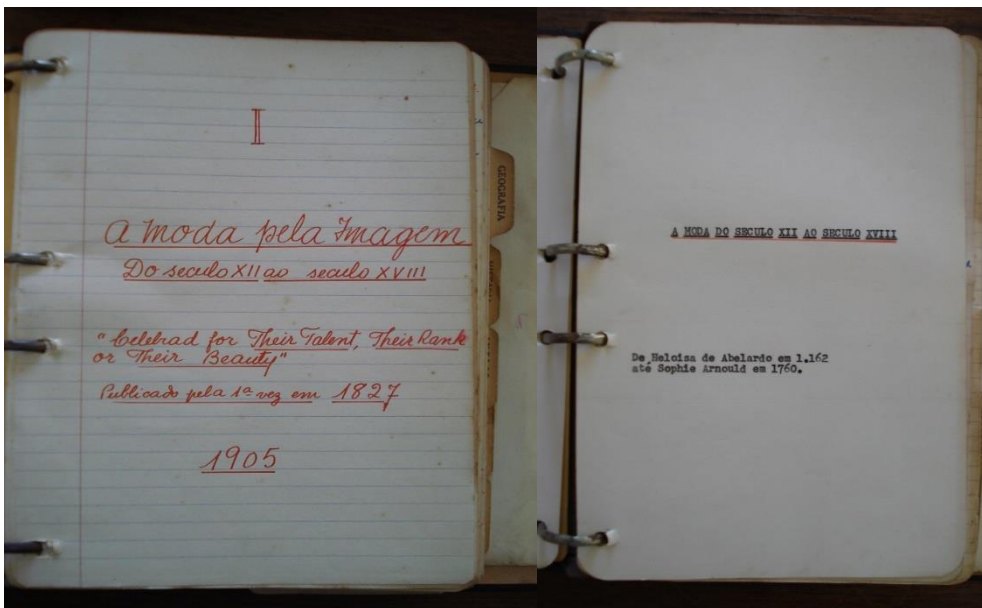 I
A Moda pela Imagem
Do seculo XII ao seculo XVIII
"Celebrad for Their Talent, Their Rank
or Their Beauty"
Publicado pela 1ª vez em 1827
1905
GEOGRAFIA
A MODA DO SECULO XII AO SECULO XVIII
De Heloisa de Abelardo em 1.162
até Sophie Arnould em 1760.